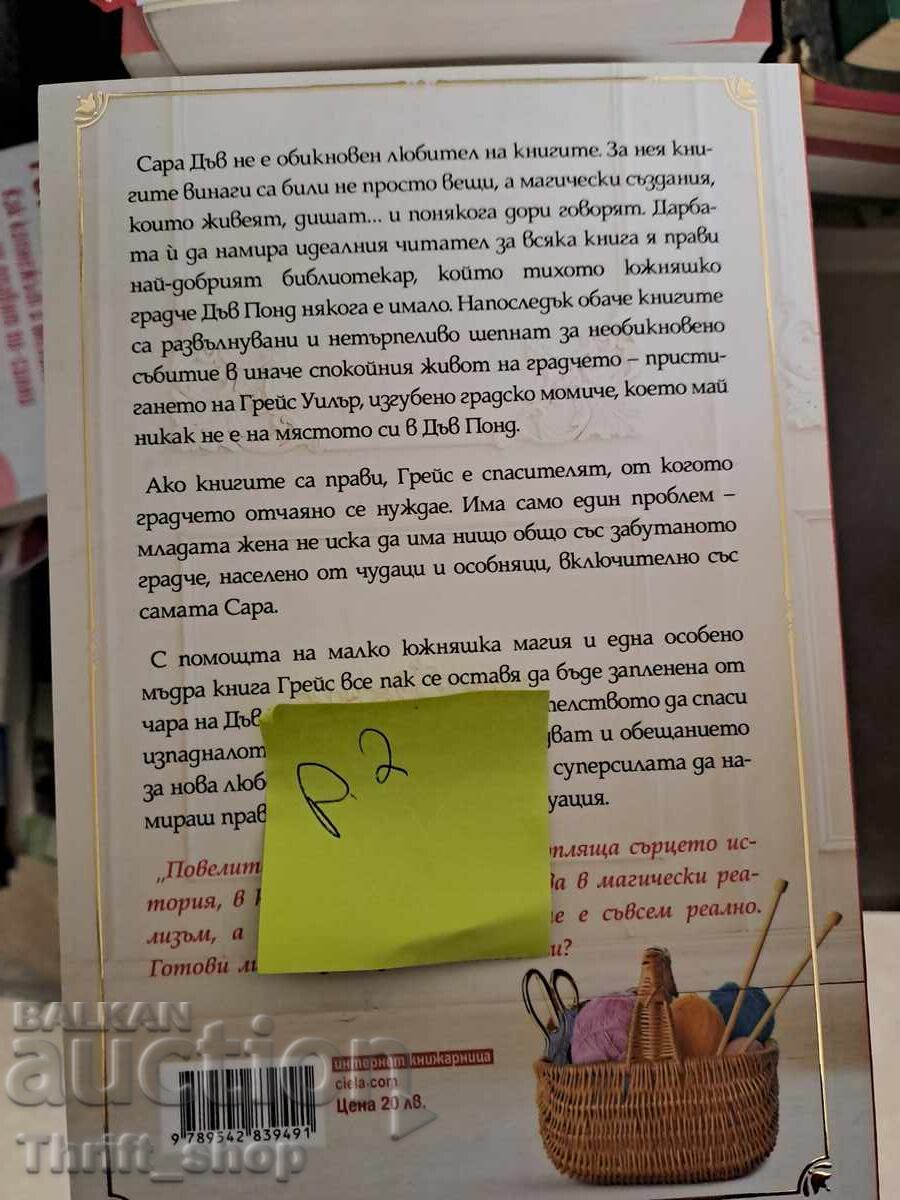 Сара Дъв не е обикновен любител на книгите. За нея кни-
гите винаги са били не просто вещи, а магически създания,
които живеят, дишат... и понякога дори говорят. Дарба-
та ѝ да намира идеалния читател за всяка книга я прави
най-добрият библиотекар, който тихото южняшко
градче Дъв Понд някога е имало. Напоследък обаче книгите
са развълнувани и нетърпеливо шепнат за необикновено
събитие в иначе спокойния живот на градчето – присти-
гането на Грейс Уилър, изгубено градско момиче, което май
никак не е на мястото си в Дъв Понд.
Ако книгите са прави, Грейс е спасителят, от когото
градчето отчаяно се нуждае. Има само един проблем –
младата жена не иска да има нищо общо със забутаното
градче, населено от чудаци и особняци, включително със
самата Сара.
С помощта на малко южняшка магия и една особено
мъдра книга Грейс все пак се оставя да бъде запленена от
чара на Дъв телството да спаси
изпадналот дват и обещанието
за нова люб суперсилата да на-
мираш прав уация.
„Повелит опляща сърцето ис-
тория, в ва в магически реа-
лизъм, а е съвсем реално.
Готови ли и?
p. 2
интернет книжарница
ciela.com
Цена 20 лв.
9 789542 839491
BALKAN
auction
Thrift_shop